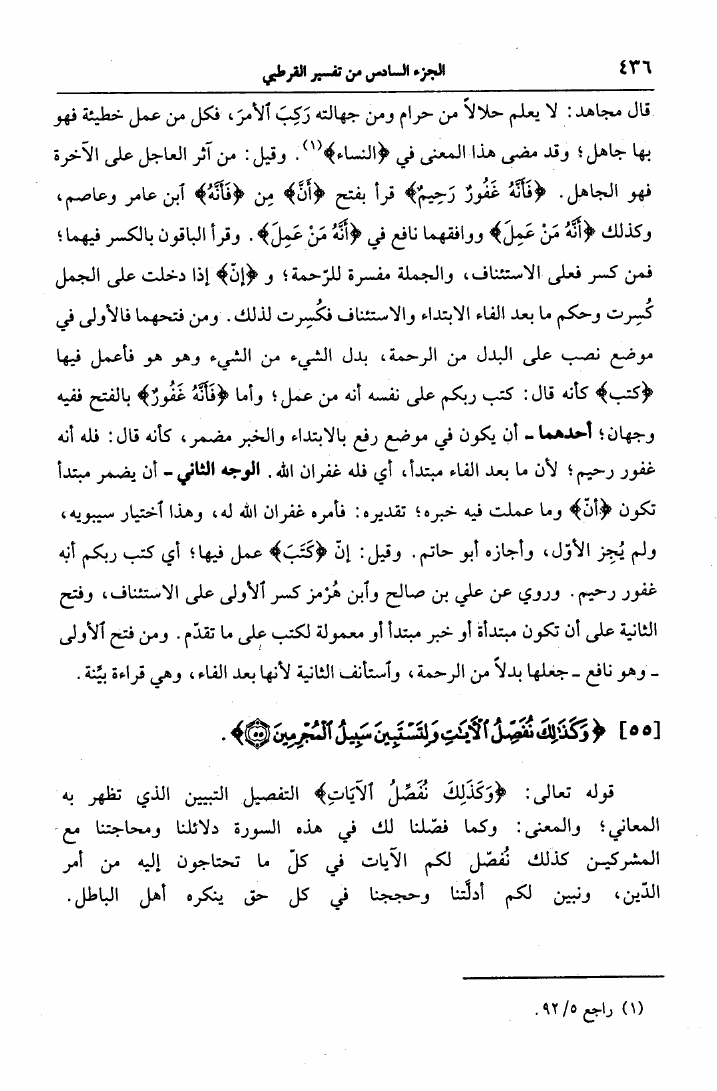 ٤٣٦ الجزء السادس من تفسير القرطبي
قال مجاهد: لا يعلم حلالاً من حرام ومن جهالته رَكِبَ ٱلأمرَ، فكل من عمل خطيئة فهو
بها جاهل؛ وقد مضى هذا المعنى في ﴿النساء﴾(١). وقيل: من آثر العاجل على الآخرة
فهو الجاهل. ﴿فَأَنَّهُ غَفُورٌ رَحِيمٌ﴾ قرأ بفتح ﴿أَنَّ﴾ مِن ﴿فَأَنَّهُ﴾ ٱبن عامر وعاصم،
وكذلك ﴿أَنَّهُ مَنْ عَمِلَ﴾ ووافقهما نافع في ﴿أَنَّهُ مَنْ عَمِلَ﴾. وقرأ الباقون بالكسر فيهما؛
فمن كسر فعلى الاستئناف، والجملة مفسرة للرّحمة؛ و ﴿إنّ﴾ إذا دخلت على الجمل
كُسِرت وحكم ما بعد الفاء الابتداء والاستئناف فكُسِرت لذلك. ومن فتحهما فالأولى في
موضع نصب على البدل من الرحمة، بدل الشيء من الشيء وهو هو فأعمل فيها
﴿كتب﴾ كأنه قال: كتب ربكم على نفسه أنه من عمل؛ وأما ﴿فَأَنَّهُ غَفُورٌ﴾ بالفتح ففيه
وجهان؛ أحدهما ـ أن يكون في موضع رفع بالابتداء والخبر مضمر، كأنه قال: فله أنه
غفور رحيم؛ لأن ما بعد الفاء مبتدأ، أي فله غفران الله. الوجه الثاني ـ أن يضمر مبتدأ
تكون ﴿أنّ﴾ وما عملت فيه خبره؛ تقديره: فأمره غفران الله له، وهذا ٱختيار سيبويه،
ولم يُجِز الأوّل، وأجازه أبو حاتم. وقيل: إنّ ﴿كَتَبَ﴾ عمل فيها؛ أي كتب ربكم أنه
غفور رحيم. وروي عن علي بن صالح وٱبن هُرْمز كسر ٱلأولى على الاستئناف، وفتح
الثانية على أن تكون مبتدأة أو خبر مبتدأ أو معمولة لكتب على ما تقدّم. ومن فتح ٱلأولى
ـ وهو نافع ـ جعلها بدلاً من الرحمة، وٱستأنف الثانية لأنها بعد الفاء، وهي قراءة بيِّنة.
[٥٥] ﴿وَكَذَٰلِكَ نُفَصِّلُ ٱلْآيَٰتِ وَلِتَسْتَبِينَ سَبِيلُ ٱلْمُجْرِمِينَ ۝٥٥﴾.
قوله تعالى: ﴿وَكَذَلِكَ نُفَصِّلُ ٱلآيَاتِ﴾ التفصيل التبيين الذي تظهر به
المعاني؛ والمعنى: وكما فصّلنا لك في هذه السورة دلائلنا ومحاجتنا مع
المشركين كذلك نُفصّل لكم الآيات في كلّ ما تحتاجون إليه من أمر
الدّين، ونبين لكم أدلَّتنا وحججنا في كل حق ينكره أهل الباطل.
(١) راجع ٩٢/٥.